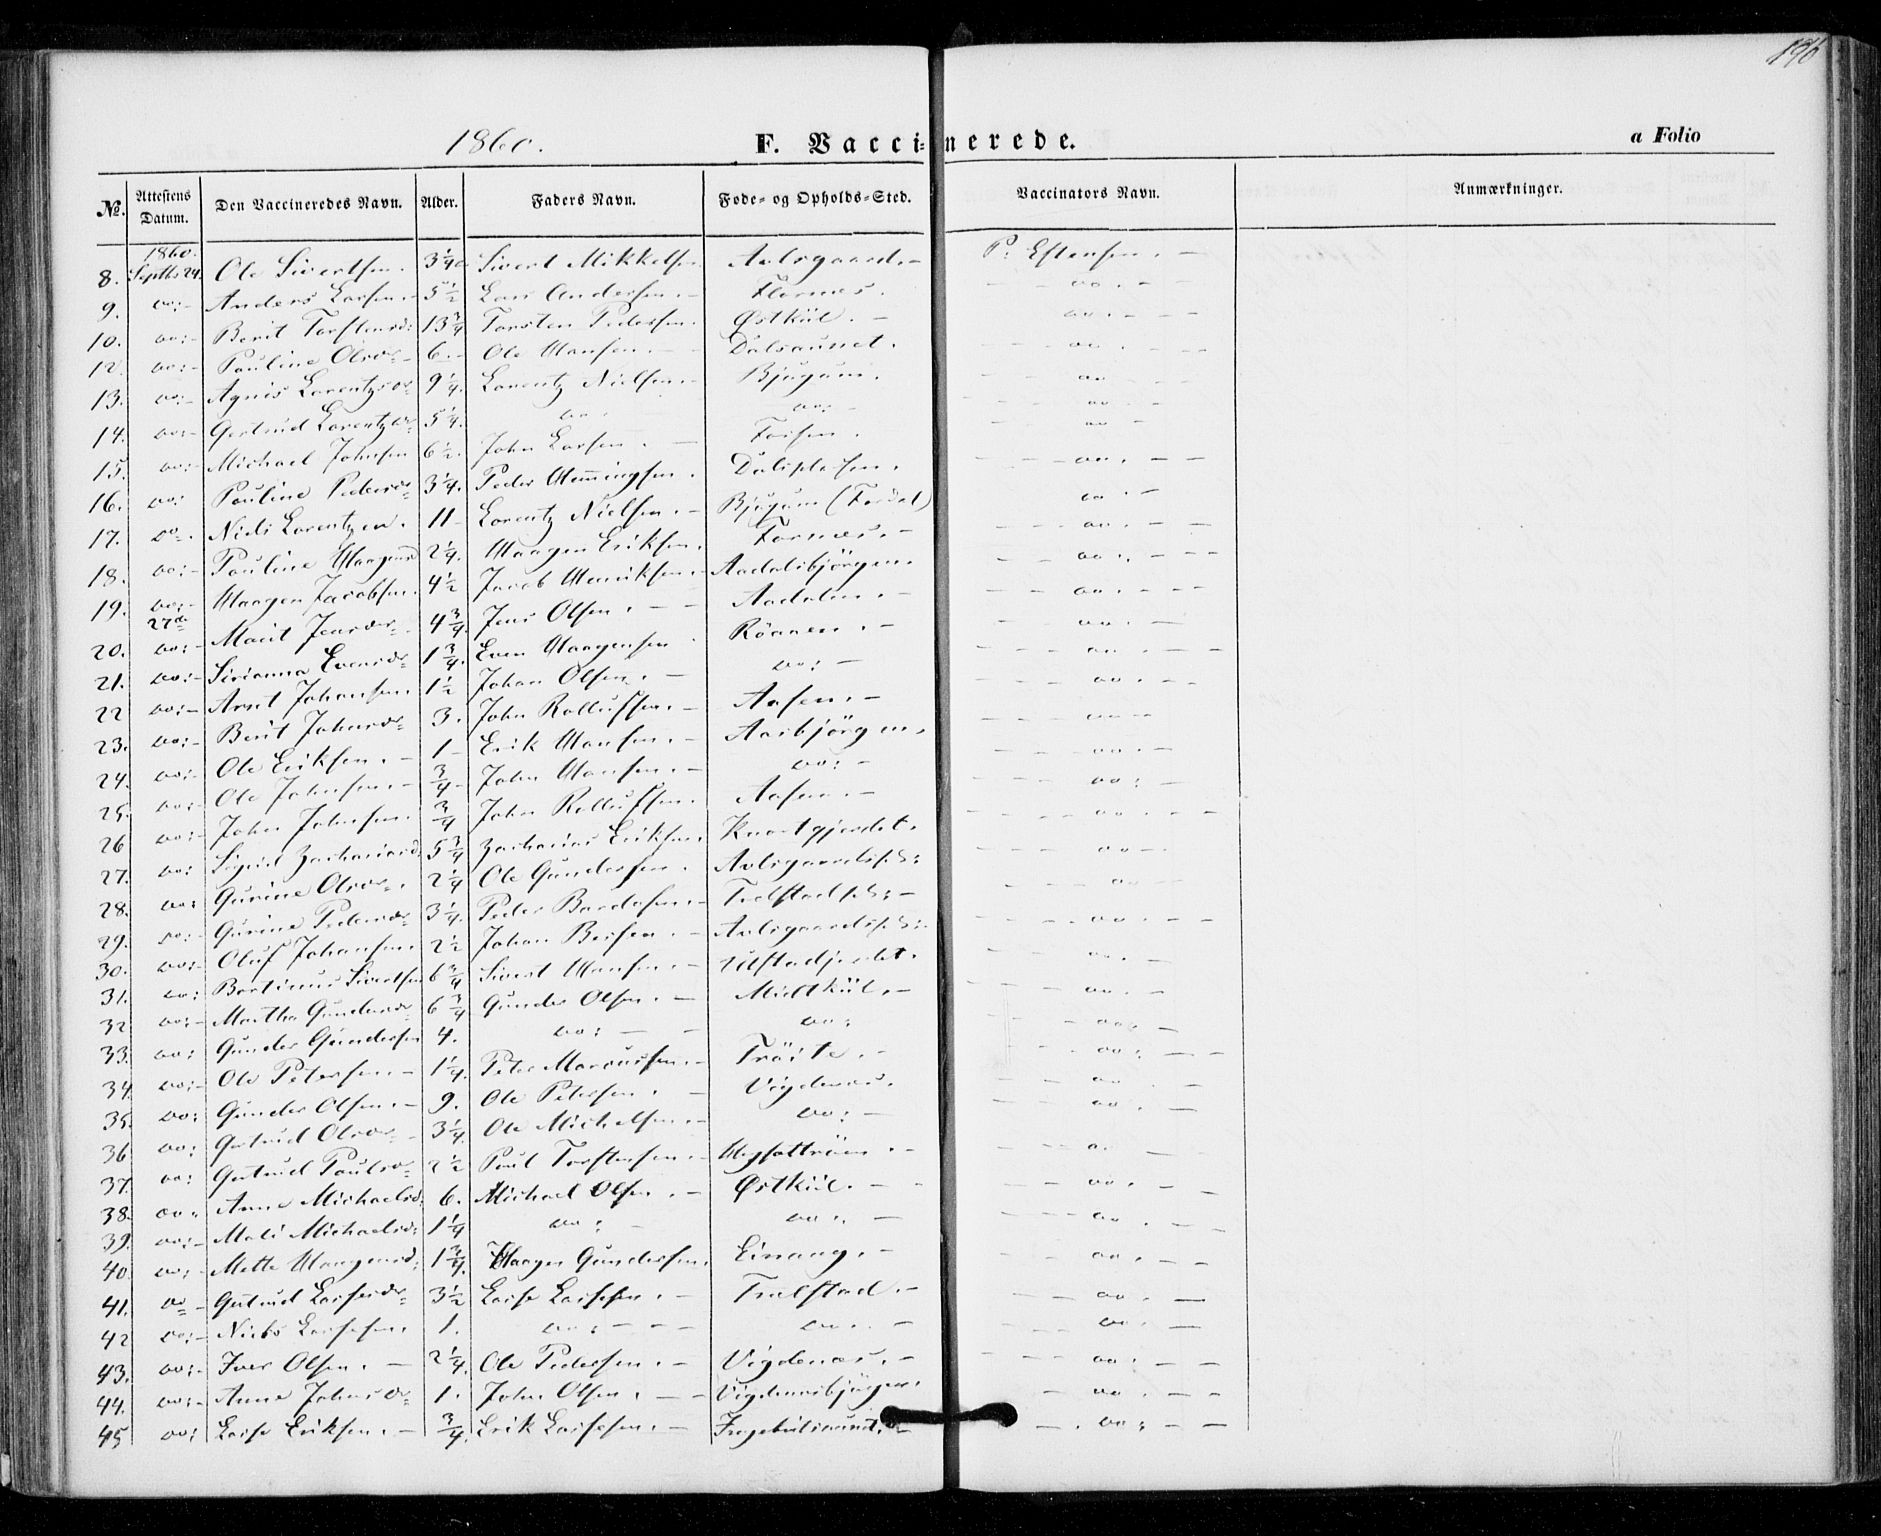 196
1860.
F. Vaccinerede.
a Folio
No. Attestens Datum. Den Vaccineredes Navn. Alder. Faders Navn. Føde- og Opholds-Sted. Vaccinators Navn. Anmærkninger.
1860.
8. Septbr 24 Ole Sivertsen. 3 1/4 Sivert Mikkelsen Aalsgaard. – P. Estensen. –
9. do: – Anders Larsen. – 5 1/2 Lars Andersen. – Flornes. – – do. – –
10. do: – Berit Torstensd: 13 3/4 Torsten Pedersen. Østkiil. – do. – – –
12. do: – Pauline Olsdr – 6. – Ole Hansen. – Dalsaunet. – – do. – – –
13. do: – Agnis Lorentzdr 9 1/4 Lorentz Nielsen. – Bjugum. – – – do – – –
14. do: – Gertrud Lorentzdr 5 1/4. do. do: – – – do – – –
15. do: – Michael Johnsen 6 1/2. John Larsen. – Forsen. – – do –
16. do: Pauline Pedersdr 3 1/4. Peder Hemmingsen. Dalsplassen. – – – do. – –
17. do. Niels Lorentzen. 11 – Lorentz Nielsen. – Bjugum (Fordal) do. –
18. do: – Pauline Haagensd 2 1/4. Haagen Eriksen. Fornes. – – – – do. – –
19. do: – Haagen Jacobsen. 4 1/2 Jacob Henriksen. – Aadalsbjørgen. – – do. – – –
27de
20. do: – Marit Jensdr – 4 3/4. Jens Olsen. – – Aadalen. – – – – do. – – –
21. do: – Sirianna Evensdr 1 3/4. Even Haagensen Rönnen. – – – do. –
22 do: – Arnt Johansen. 1 1/2 Johan Olsen. – do: – – – – do. – – –
23. do: – Berit Johnsdr 3. John Rolluffsen. – Aasen. – – – – do. – –
24. do: – Ole Eriksen. – 1 – Erik Hansen. – Aasbjörgen. – – – do – –
25. do: – Ole Johnsen. – 3/4 – John Hansen. – do: – – – – do. – –
26 do: – John Johnsen. 3/4 John Rolluffsen. Aasen. – – – – do: –
27. do: Sigrid Zachariasd. 5 3/4 Zacharias Eriksen. Kvartgjerdet. – – – do. – – –
28. do: Gurine Olsdr. 2 1/4 Ole Gundersen. Aalsgaardspl: – – – do –
29. do: – Gurine Pedersdr 3 1/4. Peder Bardosen. – Trelstadpl: – – – – do –
30. do: – Oluf Johansen. 2 1/2 Johan Bersen. – Aalsgaardspl: – – – do. – –
31. do: Bertinus Sivertsen 6 3/4 Sivert Hansen. – Ulstadjerdet. – – do. –
32 do: – Martha Gundersdr 6 3/4 Gunder Olsen. – Midtkiil. – – – – do. –
33. do: Gunder Gundersen 4. do: – – do: – – do. –
34. do: – Ole Petersen. – 1 1/4. Peter Marcussen. – Tröite. – – – do: – –
35. do: Gunder Olsen. – 9. Ole Petersen. – Vigdenes. – – do –
36 do: Gertrud Olsdr – 3 1/4. Ole Michelsen. – do: – – – do. –
37. do: Gertrud Paulsdr 2 1/2 Paul Torstensen. – – – – –
38. do: Anne Michaelsd. 6. Michael Olsen. – Østkiil. – – – – do. – –
39. do: – Mali Michaelsd: 1 1/4 do: – do: – – – do – – –
40. do: Mette Haagensd: 1 3/4. Haagen Gundersen. Einang. – – – do. – –
41. do – Gertrud Larsesdr 3 1/2 Larse Larsesen. – Trelstad. – – – do. –
42 do: – Niels Larsesen. 1. do: – – – do. – – – do. –
43. do: – Iver Olsen. – 2 1/4. Ole Pedersen. – Vigdenes. – – – – do. – –
44. do: – Anne Johnsdr 1. John Olsen. – – Vigdenesbjörgen. – do. – –
45 do: Larse Eriksen. – 3/4. Erik Larsesen. – – . do: – –